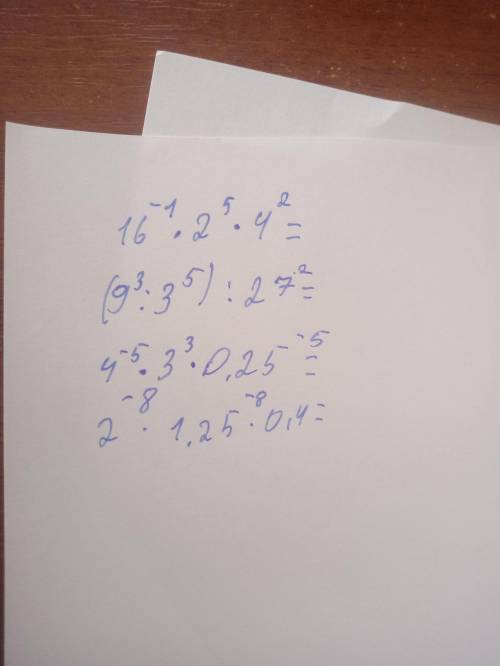 16⁻¹ · 2⁵ · 4² =
(9³ : 3⁵) : 27² =
4⁻⁵ · 3³ · 0,25⁻⁵ =
2⁻⁸ · 1,25⁻⁸ · 0,4 =